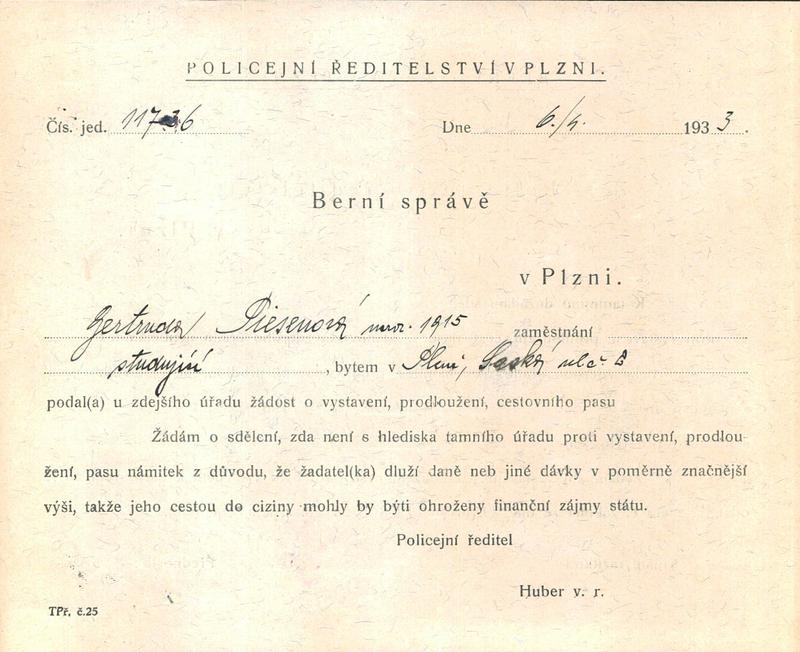 POLICEJNÍ ŘEDITELSTVÍ V PLZNI.
Čís. jed. 11736 Dne 6./4. 1933.
Berní správě
v Plzni.
Gertruda Piesenová nar. 1915 zaměstnání
studující, bytem v Plzni, ulč. 8
podal(a) u zdejšího úřadu žádost o vystavení, prodloužení, cestovního pasu
Žádám o sdělení, zda není s hlediska tamního úřadu proti vystavení, prodlou-
žení, pasu námitek z důvodu, že žadatel(ka) dluží daně neb jiné dávky v poměrně značnější
výši, takže jeho cestou do ciziny mohly by býti ohroženy finanční zájmy státu.
Policejní ředitel
Huber v. r.
TPř. č.25